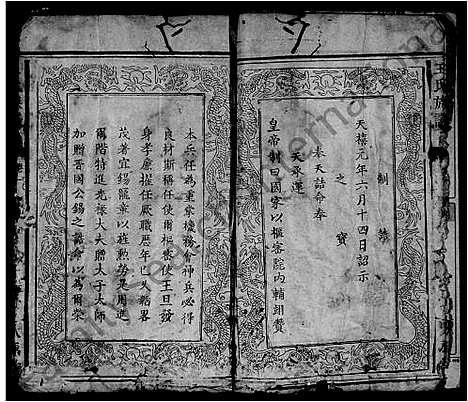 制 誥
天禧元年六月十四日詔示
之 寶
奉天誥命奉
天承運
皇帝制曰國家以樞密院內輔翊贊
本兵任為重掌機務會神兵必得
良材斯稱任使爾樞密使王旦發
身孝廉擢任厥職歷年已久韜畧
茂著宜錫龍章以旌勲勞是用進
爾階特進光祿大夫贈太子太師
加贈晉國公錫之誥命以為爾榮